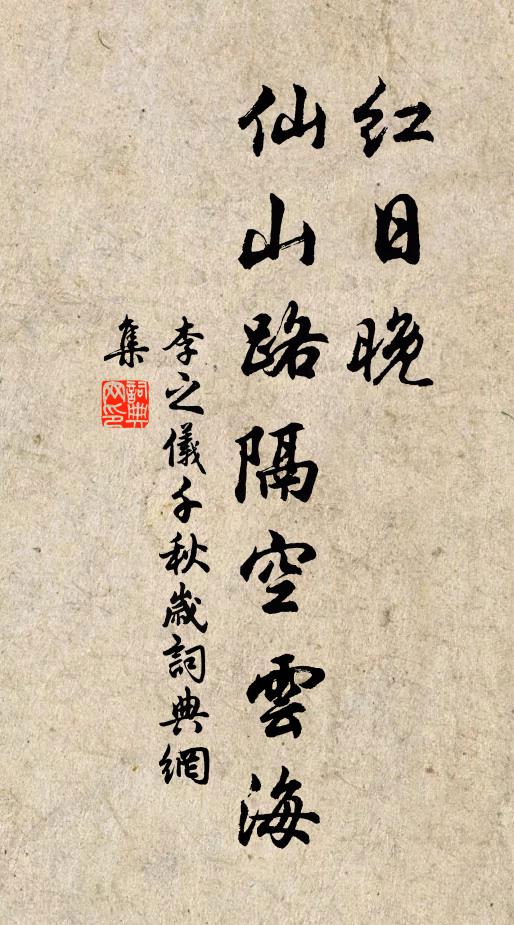 紅日晚
仙山路隔空雲海
李之儀千秋歲詞典網
集
詞典網印